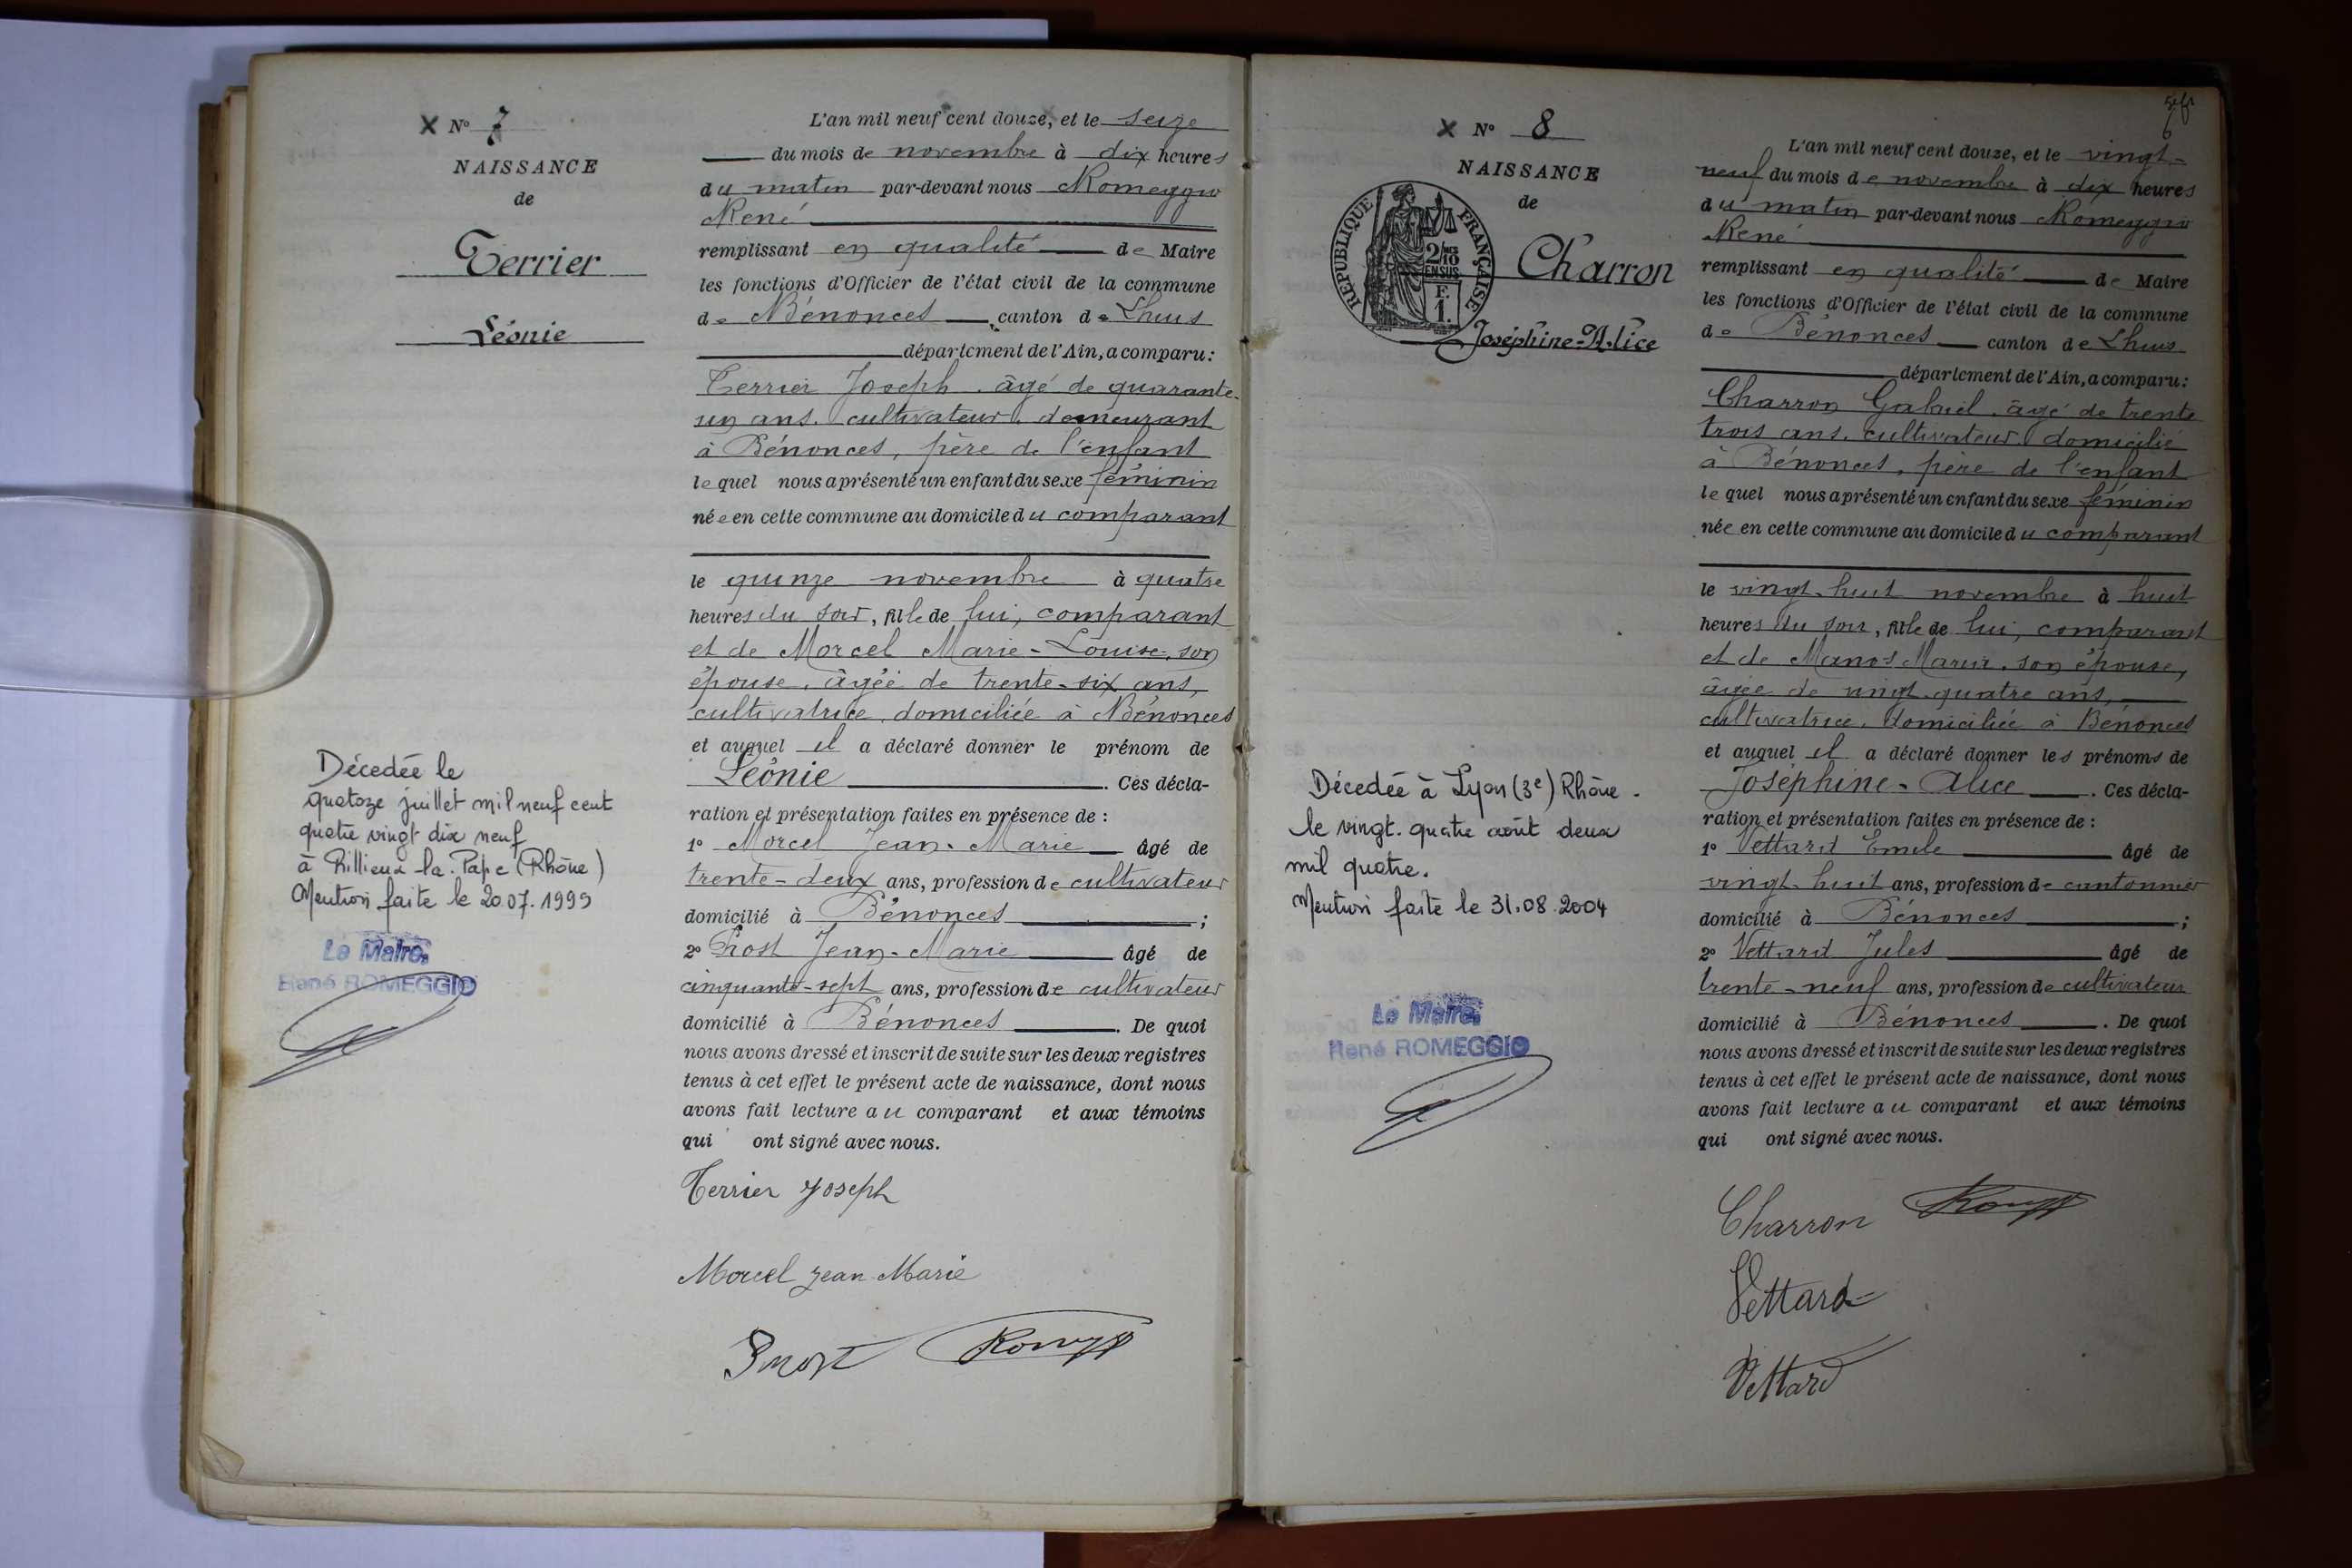 X N° 7
NAISSANCE
de
Terrier
Léonie
L'an mil neuf cent douze, et le seize
du mois de novembre à dix heures
du matin par-devant nous Romeggio
René
remplissant en qualité de Maire
les fonctions d'Officier de l'état civil de la commune
de Bénonces canton de Lhuis
département de l'Ain, a comparu :
Terrier Joseph. âgé de quarante-
un ans. cultivateur. demeurant
à Bénonces, père de l'enfant
lequel nous a présenté un enfant du sexe féminin
née en cette commune au domicile du comparant
le quinze novembre à quatre
heures du soir, fille de lui, comparant
et de Morcel Marie-Louise. son
épouse. âgée de trente-six ans,
cultivatrice, domiciliée à Bénonces
et auquel il a déclaré donner le prénom de
Léonie. Ces décla-
ration et présentation faites en présence de :
1° Morcel Jean-Marie âgé de
trente-deux ans, profession de cultivateur
domicilié à Bénonces ;
2° Prost Jean-Marie âgé de
cinquante-sept ans, profession de cultivateur
domicilié à Bénonces. De quoi
nous avons dressé et inscrit de suite sur les deux registres
tenus à cet effet le présent acte de naissance, dont nous
avons fait lecture au comparant et aux témoins
qui ont signé avec nous.
Terrier Joseph
Morcel Jean Marie
Prost
Décedée le
quatoze juillet mil neuf cent
quatre vingt dix neuf
à Rillieux-la-Pape (Rhône)
Mention faite le 20.07.1999
Le Maire,
René ROMEGGIO
X N° 8
NAISSANCE
de
REPUBLIQUE FRANÇAISE
2/10
EN SUS
F.
1.
Charron
Joséphine-Alice
L'an mil neuf cent douze, et le vingt-
neuf du mois de novembre à dix heures
du matin par-devant nous Romeggio
René
remplissant en qualité de Maire
les fonctions d'Officier de l'état civil de la commune
de Bénonces canton de Lhuis
département de l'Ain, a comparu :
Charron Gabriel. âgé de trente
trois ans. cultivateur. domicilié
à Bénonces, père de l'enfant
lequel nous a présenté un enfant du sexe féminin
née en cette commune au domicile du comparant
le vingt-huit novembre à huit
heures du soir, fille de lui, comparant
et de Manos Maria. son épouse,
âgée de vingt-quatre ans,
cultivatrice. domiciliée à Bénonces
et auquel il a déclaré donner les prénoms de
Joséphine-Alice. Ces décla-
ration et présentation faites en présence de :
1° Vettard Emile âgé de
vingt-huit ans, profession de cantonnier
domicilié à Bénonces ;
2° Vettard Jules âgé de
trente-neuf ans, profession de cultivateur
domicilié à Bénonces. De quoi
nous avons dressé et inscrit de suite sur les deux registres
tenus à cet effet le présent acte de naissance, dont nous
avons fait lecture au comparant et aux témoins
qui ont signé avec nous.
Charron
Vettard
Vettard
Décedée à Lyon (3e) Rhône.
le vingt-quatre août deux
mil quatre.
Mention faite le 31.08.2004
Le Maire,
René ROMEGGIO